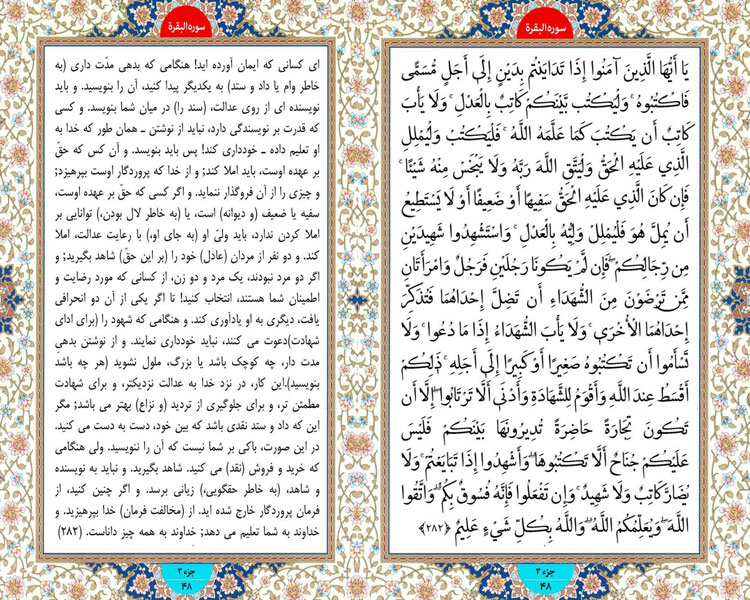 سوره‌البقرة
یَا أَیُّهَا الَّذِینَ آمَنُوا إِذَا تَدَایَنتُم بِدَیْنٍ إِلَى أَجَلٍ مُّسَمًّى
فَاکْتُبُوهُ ۚ وَلْیَکْتُب بَّیْنَکُمْ کَاتِبٌ بِالْعَدْلِ ۚ وَلَا یَأْبَ
کَاتِبٌ أَن یَکْتُبَ کَمَا عَلَّمَهُ اللَّهُ ۚ فَلْیَکْتُبْ وَلْیُمْلِلِ
الَّذِی عَلَیْهِ الْحَقُّ وَلْیَتَّقِ اللَّهَ رَبَّهُ وَلَا یَبْخَسْ مِنْهُ شَیْئًا ۚ
فَإِن کَانَ الَّذِی عَلَیْهِ الْحَقُّ سَفِیهًا أَوْ ضَعِیفًا أَوْ لَا یَسْتَطِیعُ
أَن یُمِلَّ هُوَ فَلْیُمْلِلْ وَلِیُّهُ بِالْعَدْلِ ۚ وَاسْتَشْهِدُوا شَهِیدَیْنِ
مِن رِّجَالِکُمْ ۖ فَإِن لَّمْ یَکُونَا رَجُلَیْنِ فَرَجُلٌ وَامْرَأَتَانِ
مِمَّن تَرْضَوْنَ مِنَ الشُّهَدَاءِ أَن تَضِلَّ إِحْدَاهُمَا فَتُذَکِّرَ
إِحْدَاهُمَا الْأُخْرَى ۚ وَلَا یَأْبَ الشُّهَدَاءُ إِذَا مَا دُعُوا ۚ وَلَا
تَسْأَمُوا أَن تَکْتُبُوهُ صَغِیرًا أَوْ کَبِیرًا إِلَى أَجَلِهِ ۚ ذَٰلِکُمْ
أَقْسَطُ عِندَ اللَّهِ وَأَقْوَمُ لِلشَّهَادَةِ وَأَدْنَى أَلَّا تَرْتَابُوا ۖ إِلَّا أَن
تَکُونَ تِجَارَةً حَاضِرَةً تُدِیرُونَهَا بَیْنَکُمْ فَلَیْسَ
عَلَیْکُمْ جُنَاحٌ أَلَّا تَکْتُبُوهَا ۗ وَأَشْهِدُوا إِذَا تَبَایَعْتُمْ ۚ وَلَا
یُضَارَّ کَاتِبٌ وَلَا شَهِیدٌ ۚ وَإِن تَفْعَلُوا فَإِنَّهُ فُسُوقٌ بِکُمْ ۗ وَاتَّقُوا
اللَّهَ ۖ وَیُعَلِّمُکُمُ اللَّهُ ۗ وَاللَّهُ بِکُلِّ شَیْءٍ عَلِیمٌ ﴿۲۸۲﴾
جزء ۳
۴۸
سوره‌البقرة
ای کسانی که ایمان آورده اید! هنگامی که بدهی مدّت داری (به
خاطر وام یا داد و ستد) به یکدیگر پیدا کنید، آن را بنویسید. و باید
نویسنده ای از روی عدالت، (سند را) در میان شما بنویسد. و کسی
که قدرت بر نویسندگی دارد، نباید از نوشتن ـ همان طور که خدا به
او تعلیم داده ـ خودداری کند! پس باید بنویسد. و آن کس که حقّ
بر عهده اوست، باید املا کند؛ و از خدا که پروردگار اوست بپرهیزد؛
و چیزی را از آن فروگذار ننماید. و اگر کسی که حقّ بر عهده اوست،
سفیه یا ضعیف (و دیوانه) است، یا (به خاطر لال بودن،) توانایی بر
املا کردن ندارد، باید ولیّ او (به جای او،) با رعایت عدالت، املا
کند. و دو نفر از مردان (عادل) خود را (بر این حقّ) شاهد بگیرید؛ و
اگر دو مرد نبودند، یک مرد و دو زن، از کسانی که مورد رضایت و
اطمینان شما هستند، انتخاب کنید! تا اگر یکی از آن دو انحرافی
یافت، دیگری به او یادآوری کند. و هنگامی که شهود را (برای ادای
شهادت)دعوت می کنند، نباید خودداری نمایند. و از نوشتن بدهی
مدت دار، چه کوچک باشد یا بزرگ، ملول نشوید (هر چه باشد
بنویسید).این کار، در نزد خدا به عدالت نزدیکتر، و برای شهادت
مطمئن تر، و برای جلوگیری از تردید (و نزاع) بهتر می باشد؛ مگر
این که داد و ستد نقدی باشد که بین خود، دست به دست می کنید.
در این صورت، باکی بر شما نیست که آن را ننویسید. ولی هنگامی
که خرید و فروش (نقد) می کنید. شاهد بگیرید. و نباید به نویسنده
و شاهد، (به خاطر حقگویی،) زیانی برسد. و اگر چنین کنید، از
فرمان پروردگار خارج شده اید. از (مخالفت فرمان) خدا بپرهیزید. و
خداوند به شما تعلیم می دهد؛ خداوند به همه چیز داناست. (۲۸۲)
جزء ۳
۴۸